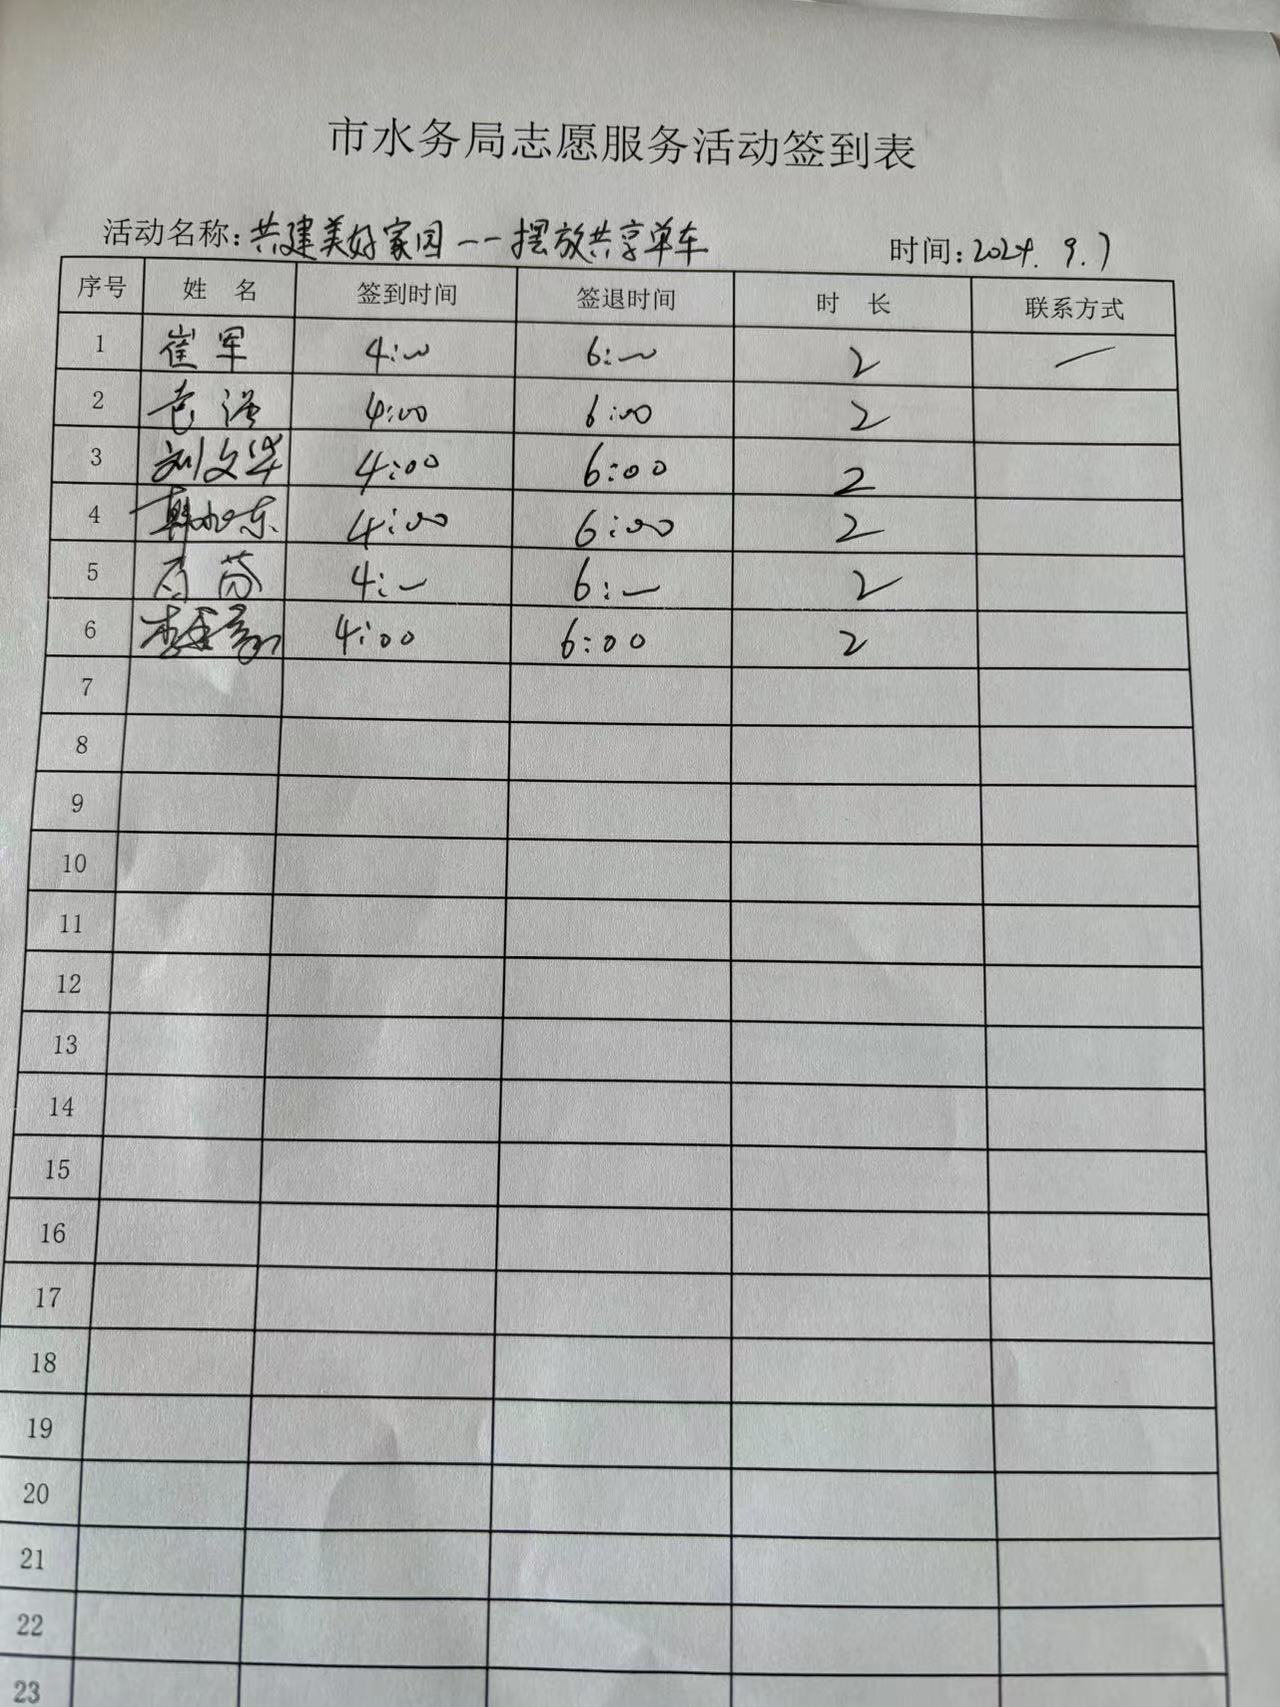 市水务局志愿服务活动签到表
活动名称:共建美好家园--摆放共享单车 时间:2024.9.7
序号 姓 名 签到时间 签退时间 时 长 联系方式
1 崔军 4:00 6:00 2 —
2 袁强 4:00 6:00 2
3 刘文华 4:00 6:00 2
4 韩东 4:00 6:00 2
5 4:00 6:00 2
6 李 4:00 6:00 2
7
8
9
10
11
12
13
14
15
16
17
18
19
20
21
22
23